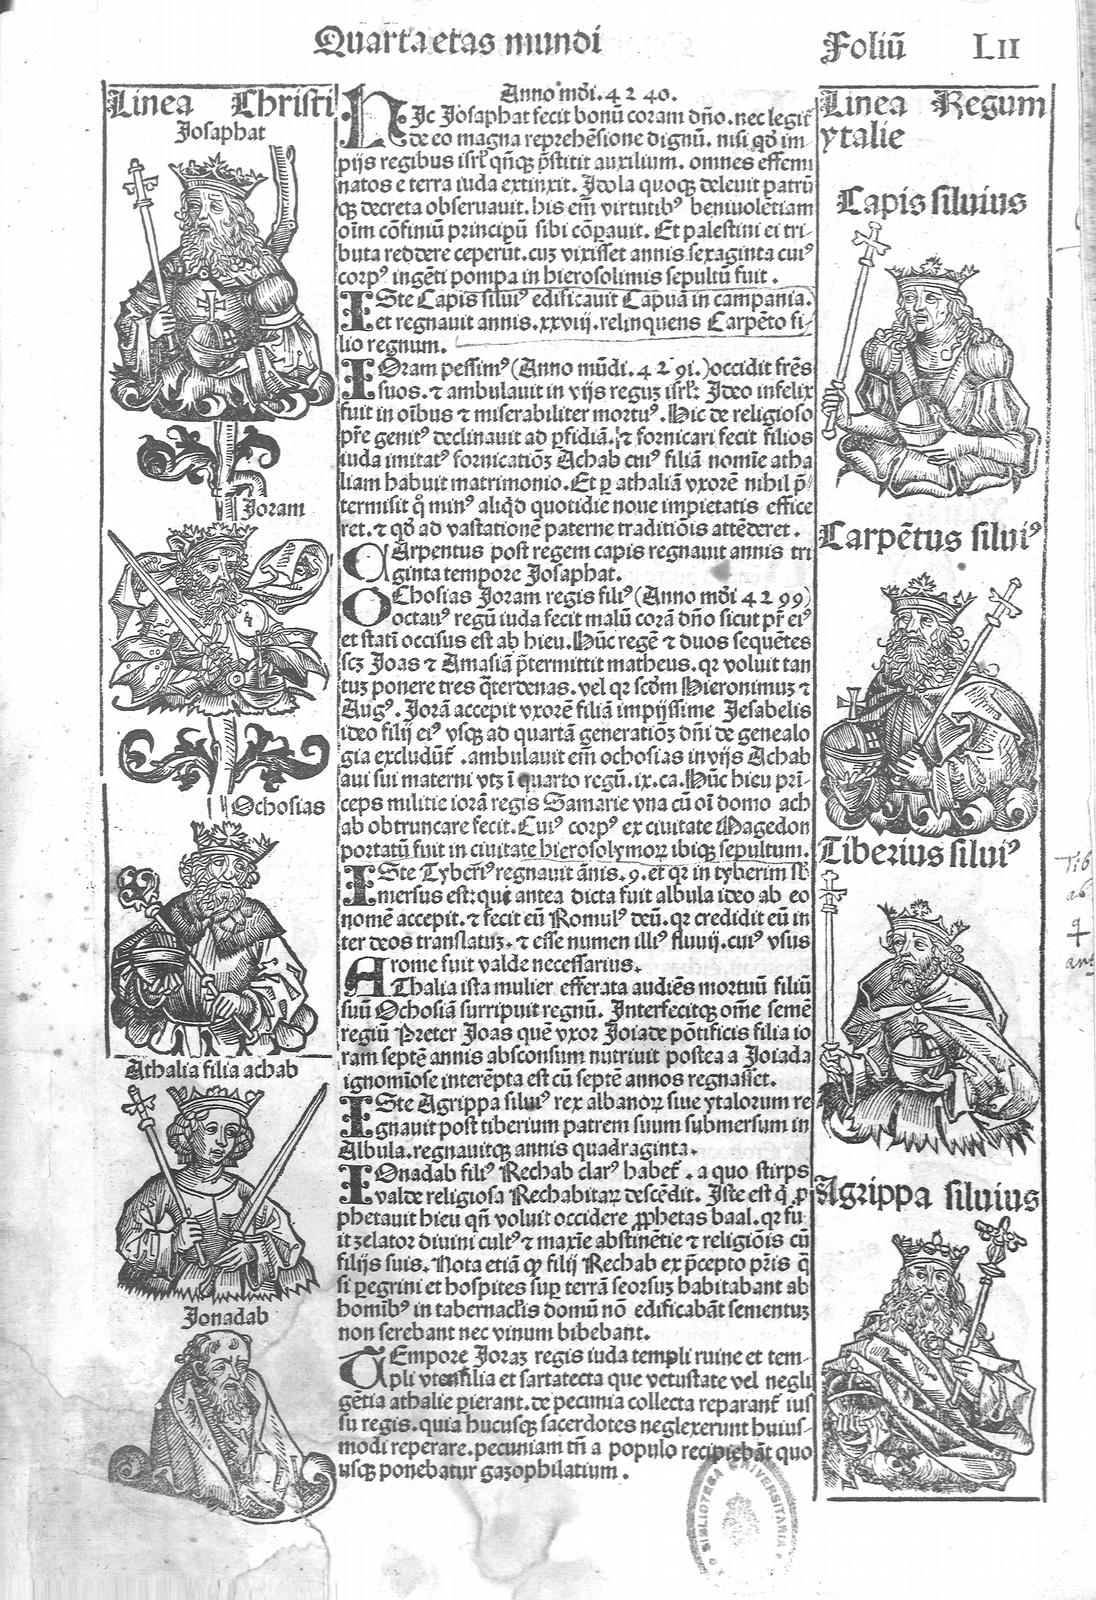 Quarta etas mundi
Foliũ LII
Linea Christi
Josaphat
Joram
Ochosias
Athalia filia achab
Jonadab
Anno mũdi. 4240.
HIc Josaphat fecit bonũ coram dño. nec legit̃
de eo magna reprehẽsione dignũ. nisi qđ im
pijs regibus isrl̃ qñqꝫ p̃stitit auxilium. omnes effemi
natos e terra iuda extinxit. Idola quoqꝫ deleuit patrũ
qꝫ decreta obseruauit. his em̃ virtutibꝰ beniuolẽtiam
oĩm cõfiniũ principũ sibi cõpauit. Et palestini ei tri-
buta reddere ceperũt. cuꝫ vixisset annis sexaginta cuiꝰ
corpꝰ ingẽti pompa in hierosolimis sepultũ fuit.
ISte Capis siluiꝰ edificauit Capuã in campania.
et regnauit annis. xxviij. relinquens Carpẽto fi-
lio regnum.
IOram pessimꝰ (Anno mũdi. 4291.) occidit frẽs
suos. ⁊ ambulauit in vijs reguꝫ isrl̃: Ideo infelix
fuit in oĩbus ⁊ miserabiliter mortuꝰ. Hic de religioso
pr̃e genitꝰ declinauit ad ꝑfidiã. ⁊ fornicari fecit filios
iuda imitatꝰ fornicatiõꝫ Achab cuiꝰ filiã nomĩe atha
liam habuit matrimonio. Et ꝑ athaliã vxorẽ nihil p̃-
termisit q̊ minꝰ aliqd̃ quotidie noue impietatis effice
ret. ⁊ qđ ad vastationẽ paterne traditiõis attẽderet.
CArpentus post regem capis regnauit annis tri
ginta tempore Josaphat.
OChosias Joram regis filiꝰ (Anno mũdi 4299)
octauꝰ regũ iuda fecit malũ corã dño sicut pr̃ eiꝰ
et statĩ occisus est ab hieu. Hũc regẽ ⁊ duos sequẽtes
scꝫ Joas ⁊ Amasiã p̃termittit matheus. qꝛ voluit tan
tuꝫ ponere tres q̃terdenas. vel qꝛ scđm Hieronimuꝫ ⁊
Augꝰ. Jorã accepit vxorẽ filiã impijssime Jesabelis
ideo filij eiꝰ vsqꝫ ad quartã generatioꝫ dñi de genealo
gia excludũt̃. ambulauit em̃ ochosias in vijs Achab
aui sui materni vtꝫ ĩ quarto regũ. ix. ca. Hũc hieu prĩ-
ceps militie iorã regis Samarie vna cũ oĩ domo ach
ab obtruncare fecit. Cuiꝰ corpꝰ ex ciuitate Magedon
portatũ fuit in ciuitate hierosolymoꝝ ibiqꝫ sepultum.
ISte Tyberiꝰ regnauit ãnis. 9. et qꝛ in tyberim sb̃
mersus est: que antea dicta fuit albula ideo ab eo
nomẽ accepit. ⁊ fecit eũ Romulꝰ deũ. qꝛ credidit eũ in
ter deos translatuꝫ. ⁊ esse numen illiꝰ fluuij. cuiꝰ vsus
rome fuit valde necessarius.
AThalia ista mulier efferata audiẽs mortuũ filiũ
suũ Ochosiã surripuit regnũ. Interfecitqꝫ om̃e semẽ
regiũ Preter Joas quẽ vxor Joiade põtificis filia io
ram septẽ annis absconsum nutriuit postea a Joiada
ignomĩose interẽpta est cũ septẽ annos regnasset.
ISte Agrippa siluiꝰ rex albanoꝝ siue ytalorum re
gnauit post tiberium patrem suum submersum in
Albula. regnauitqꝫ annis quadraginta.
IOnadab filiꝰ Rechab clarꝰ habet̃. a quo stirps
valde religiosa Rechabitaꝝ descẽdit. Iste est q̃ ꝓ
phetauit hieu qñ voluit occidere ꝓphetas baal. qꝛ fu
it zelator diuini cultꝰ ⁊ maxĩe abstinẽtie ⁊ religiõis cũ
filijs suis. Nota etiã qꝙ filij Rechab ex p̃cepto pr̃is q̃
si ꝑegrini et hospites suꝑ terrã seorsuꝫ habitabant ab
homĩbꝰ in tabernacl̃is domũ nõ edificabãt sementuꝫ
non serebant nec vinum bibebant.
TEmpore Joraꝫ regis iuda templi ruine et tem-
pli vtensilia et sartatecta que vetustate vel negli
gẽtia athalie ꝑierant. de pecunia collecta reparant̃ ius
su regis. quia hucusqꝫ sacerdotes neglexerunt huius-
modi reperare. pecuniam tñ a populo recipiebãt quo
usqꝫ ponebatur gazophilatium.
Linea Regum
ytalie
Capis siluius
Carpẽtus siluiꝰ
Tiberius siluiꝰ
Agrippa siluius
BIBLIOTECA UNIVERSITARIA